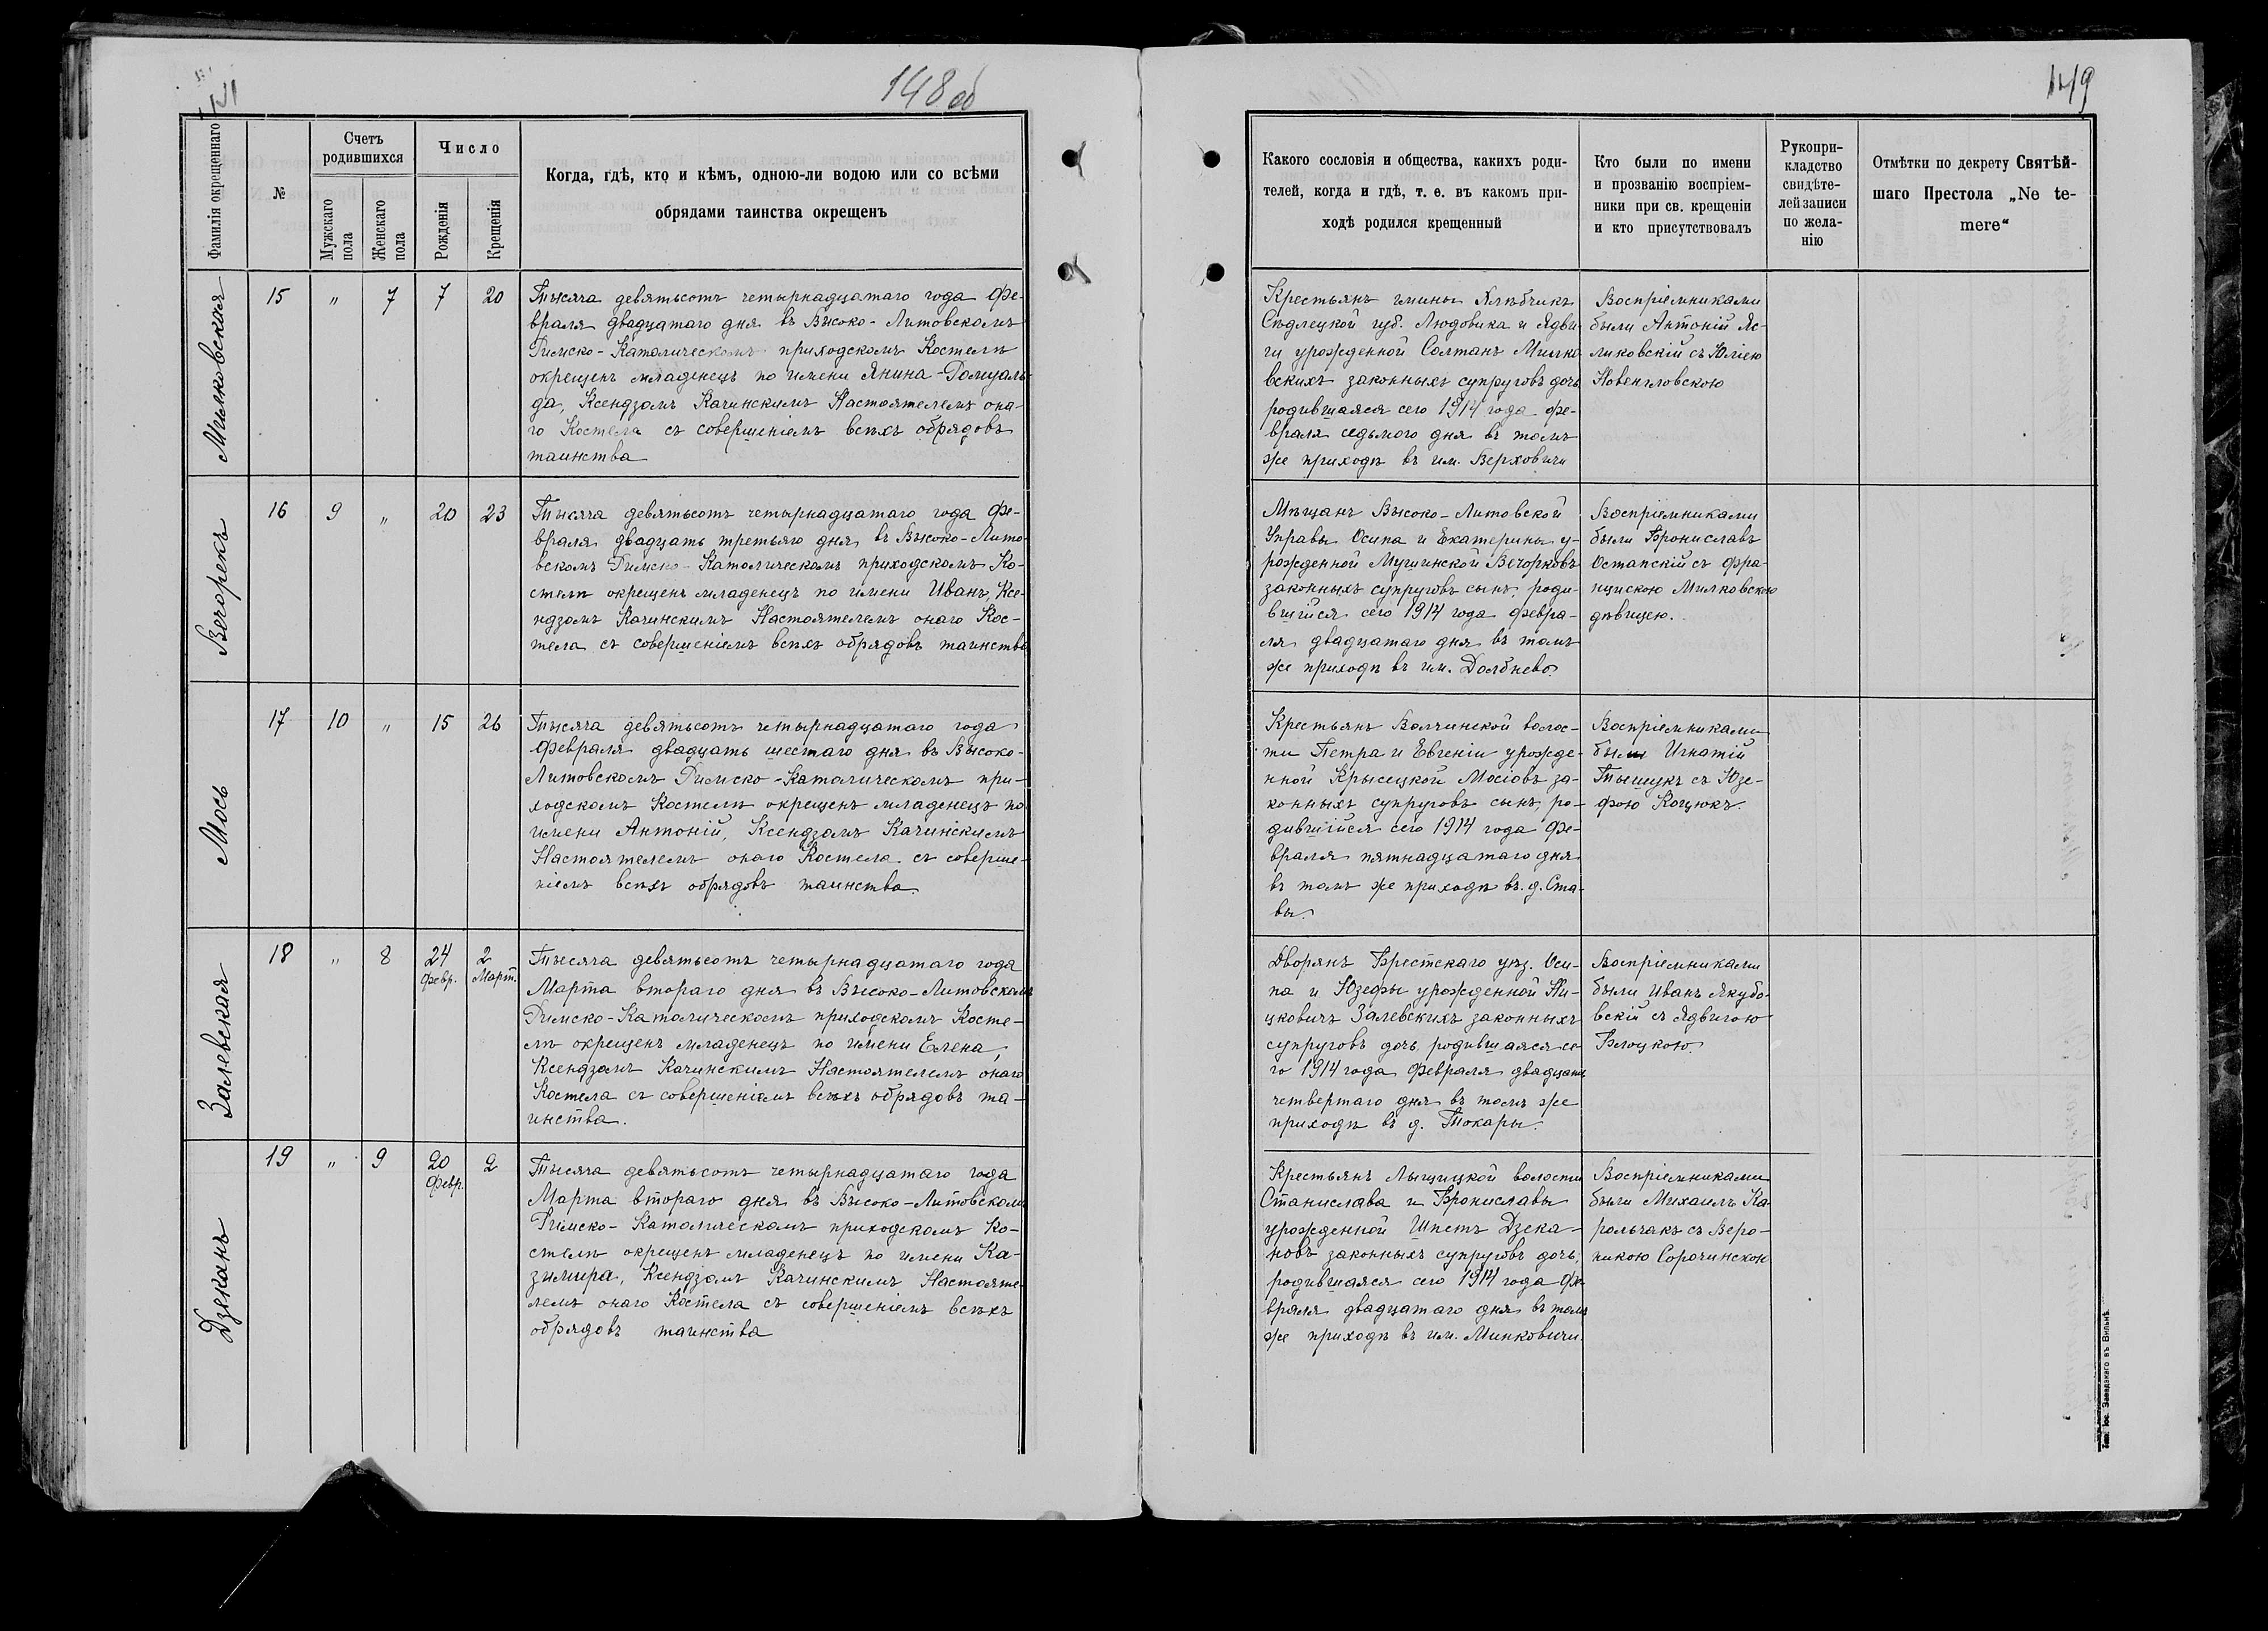 148 об
Фамилія окрещеннаго
№
Счетъ
родившихся
Мужскаго
пола
Женскаго
пола
Число
Рожденія
Крещенія
Когда, гдѣ, кто и кѣмъ, одною-ли водою или со всѣми
обрядами таинства окрещенъ
Милковская
15 " 7 7 20
Тысяча девятьсотъ четырнадцатаго года Фе-
враля двадцатаго дня въ Высоко-Литовскомъ
Римско-Католическомъ приходскомъ Костелѣ
окрещенъ младенецъ по имени Янина-Ромуаль
да, Ксендзомъ Качинскимъ Настоятелемъ она-
го Костела съ совершеніемъ всѣхъ обрядовъ
таинства
Вечорекъ
16 9 " 20 23
Тысяча девятьсотъ четырнадцатаго года Фе-
враля двадцать третьяго дня въ Высоко-Лито-
вскомъ Римско-Католическомъ приходскомъ Ко-
стелѣ окрещенъ младенецъ по имени Иванъ, Ксе-
ндзомъ Качинскимъ Настоятелемъ онаго Кос-
тела съ совершеніемъ всѣхъ обрядовъ таинства
Мось
17 10 " 15 26
Тысяча девятьсотъ четырнадцатаго года
Февраля двадцать шестаго дня въ Высоко-
Литовскомъ Римско-Католическомъ при-
ходскомъ Костелѣ окрещенъ младенецъ по
имени Антоній, Ксендзомъ Качинскимъ
Настоятелемъ онаго Костела съ соверше-
ніемъ всѣхъ обрядовъ таинства.
Залевская
18 " 8 24 2
Февр. Март.
Тысяча девятьсотъ четырнадцатаго года
Марта втораго дня въ Высоко-Литовскомъ
Римско-Католическомъ приходскомъ Косте-
лѣ окрещенъ младенецъ по имени Елена,
Ксендзомъ Качинскимъ Настоятелемъ онаго
Костела съ совершеніемъ всѣхъ обрядовъ та-
инства.
Дзеканъ
19 " 9 20 2
Февр.
Тысяча девятьсотъ четырнадцатаго года
Марта втораго дня въ Высоко-Литовскомъ
Римско-Католическомъ приходскомъ Ко-
стелѣ окрещенъ младенецъ по имени Ка-
зимира, Ксендзомъ Качинскимъ Настояте-
лемъ онаго Костела съ совершеніемъ всѣхъ
обрядовъ таинства
149
Какого сословія и общества, какихъ роди-
телей, когда и гдѣ, т. е. въ какомъ при-
ходѣ родился крещенный
Кто были по имени
и прозванію воспріем-
ники при св. крещеніи
и кто присутствовалъ
Рукопри-
кладство
свидѣте-
лей записи
по жела-
нію
Отмѣтки по декрету Святѣй-
шаго Престола „Ne te-
mere“
Крестьянъ гмины Хлѣбчикъ
Сѣдлецкой губ. Людовика и Ядви
ги урожденной Солтанъ Милко
вскихъ законныхъ супруговъ дочь
родившаяся сего 1914 года Фе-
враля седьмого дня въ томъ
же приходѣ въ им. Верховичи
Воспріемниками
были Антоній Яс-
ликовскій съ Юліею
Мѣщанъ Высоко-Литовской
Управы Осипа и Екатерины у-
рожденной Мушинской Вечорковъ
законныхъ супруговъ сынъ, роди-
вшійся сего 1914 года Февра-
ля двадцатаго дня въ томъ
же приходѣ въ им. Долбнево
Воспріемниками
были Брониславъ
Остапскій съ Фра-
нцискою Милковскою
дѣвицею.
Крестьянъ Волчинской волос-
ти Петра и Евгеніи урожде-
нной Крысецкой Мосіовъ за-
конныхъ супруговъ сынъ, ро-
дившійся сего 1914 года Фе-
враля пятнадцатаго дня
въ томъ же приходѣ въ д. Ста-
вы.
Воспріемниками
были Игнатій
Тышукъ съ Юзе-
фою Коцюкъ.
Дворянъ Брестскаго уѣз. Оси-
па и Юзефы урожденной Ни-
цковичъ Залевскихъ законныхъ
супруговъ дочь, родившаяся се
го 1914 года Февраля двадцать
четвертаго дня въ томъ же
приходѣ въ д. Токары.
Воспріемниками
были Иванъ Якубо-
вскій съ Ядвигою
Блоцкою.
Крестьянъ Лыщицкой волости
Станислава и Брониславы
урожденной Шпетъ Дзека-
новъ законныхъ супруговъ дочь,
родившаяся сего 1914 года Фе-
враля двадцатаго дня въ томъ
же приходѣ въ им. Минковичи.
Воспріемниками
были Михаилъ Ка
рольчакъ съ Веро-
никою Сорочинской
Тип. Іос. Завадзкаго въ Вильнѣ.